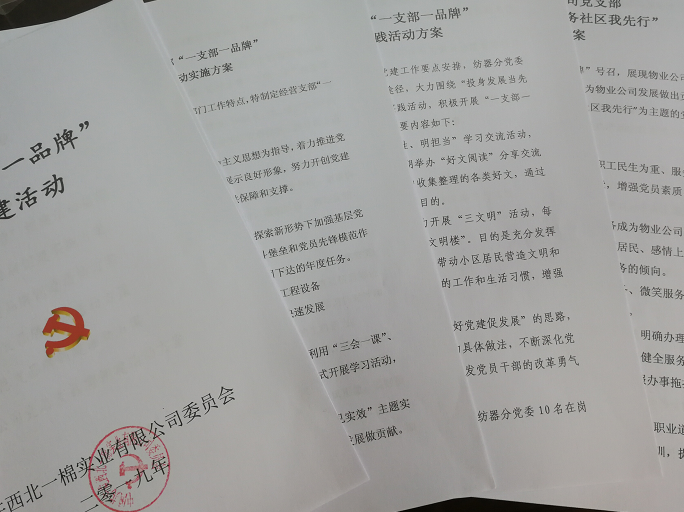 一品牌”
建活动
西北一棉实业有限公司委员会
二零一九年
“一支部一品牌”
动实施方案
门工作特点，特制定经营支部“一
主义思想为指导，着力推进党
展示良好形象，努力开创党建
保障和支撑。
探索新形势下加强基层党
堡垒和党员先锋模范作
下达的年度任务。
工程设备
速发展
利用“三会一课”、
式开展学习活动，
见实效”主题实
发展做贡献。
“一支部一品牌”
践活动方案
党建工作要点安排，纺器分党委
途径、大力围绕“投身发展当先
践活动，积极开展“一支部一
要内容如下：
、明担当”学习交流活动，
期举办“好文阅读”分享交流
收集整理的各类好文，通过
目的。
开展“三文明”活动，每
文明楼”。目的是充分发挥
带动小区居民营造文明和
的工作和生活习惯，增强
好党建促发展”的思路，
具体做法，不断深化党
发党员干部的改革勇气
纺器分党委 10 名在岗
司党支部
务社区我先行”
案
”号召，展现物业公司
为物业公司发展做出
区我先行”为主题的党
职工民生为重、服
，增强党员素质
成为物业公司
居民、感情上
务的倾向。
、微笑服务
明确办理
健全服务
办事拖
职业道